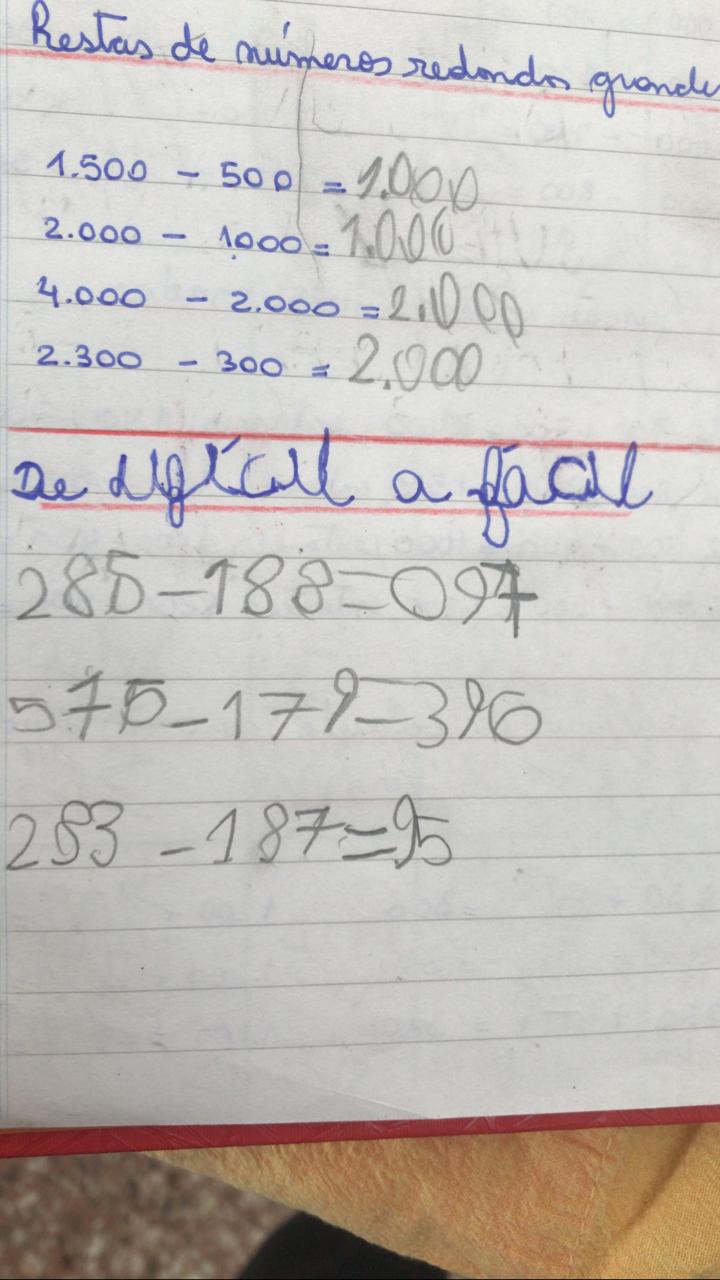 Restas de números redondos grande
1.500 - 500 = 1.000
2.000 - 1000 = 1.000
4.000 - 2.000 = 2.000
2.300 - 300 = 2.000
De difícil a fácil
285-188=097
575-179=396
283-187=95